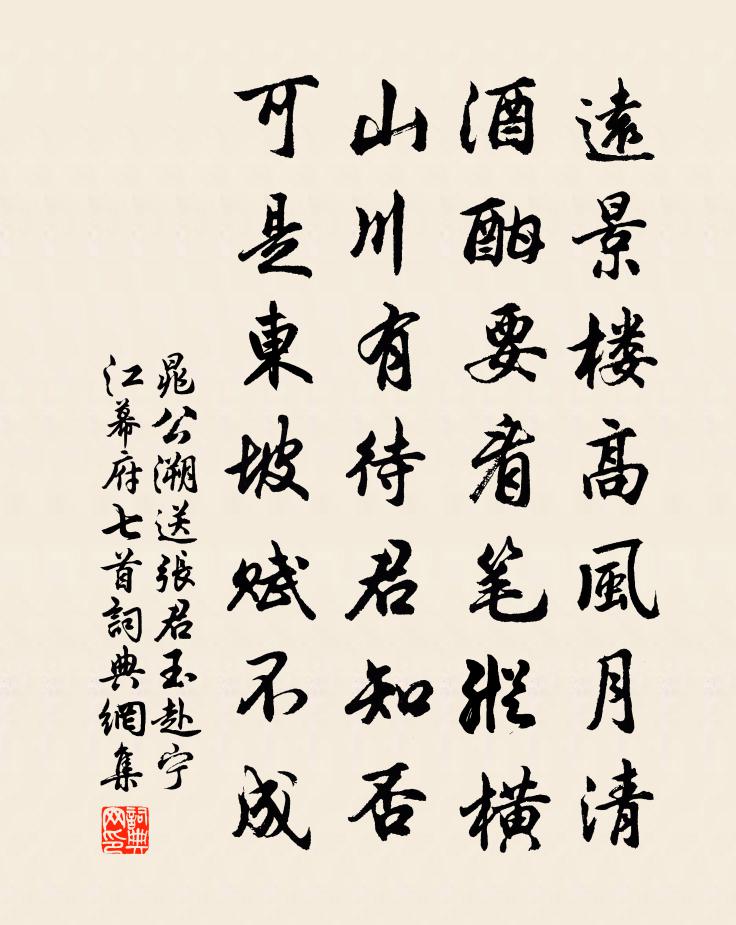 遠景楼高風月清
酒酣要看笔縱橫
山川有待君知否
可是東坡赋不成
晁公溯送張君玉赴宁
江幕府七首詞典網集
詞典网印